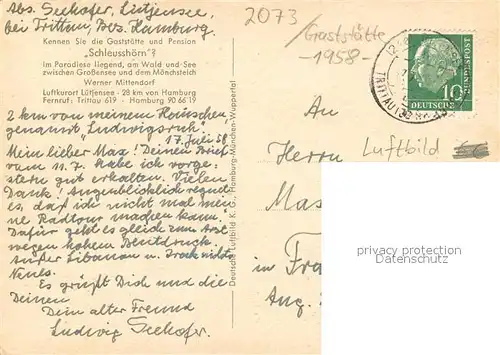 Abs. Seehofer, Lütjensee,
bei Trittau, Bez. Hamburg.
Kennen Sie die Gaststätte und Pension
„Schleusshörn"?
Im Paradiese liegend, am Wald und See
zwischen Großensee und dem Mönchsteich
Werner Mittendorf
Luftkurort Lütjensee - 28 km von Hamburg
Fernruf: Trittau 619 - Hamburg 90 66 19
2 km von meinem Häuschen,
genannt „Ludwigsruh"!
17. Juli 58
Mein lieber Max! Deinen Brief
vom 11.7. habe ich vorge-
stern gut erhalten. Vielen
Dank! Augenblicklich regnet
es, daß ich nicht mal mei-
ne Radtour machen kann.
Dafür geht es gleich zum Arzt
wegen hohem Blutdruck.
Außer Libanon u. Irak nichts
Neues.
Es grüßt Dich und die
Deinen
Dein alter Freund
Ludwig Seehofer.
Deutsche Luftbild K. G., Hamburg-München-Wuppertal
2073
Gaststätte
-1958-
TRITTAU
DEUTSCHE
BUNDESPOST
10
An
Herrn
Luftbild
Max
in Fra
privacy protection
Persönlichkeitsrechte